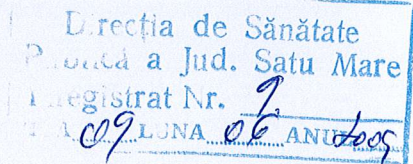 Direcția de Sănătate
Publică a Jud. Satu Mare
Înregistrat Nr. 9
ZIUA 09 LUNA 06 ANUL 2009